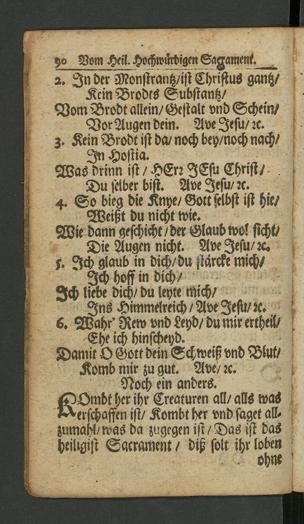 90 Vom Heil. Hochwürdigen Sacrament.
2. In der Monstrantz/ist Christus gantz/
Kein Brodts Substantz/
Vom Brodt allein/ Gestalt vnd Schein/
Vor Augen dein. Ave Jesu/ ꝛc.
3. Kein Brodt ist da/ noch bey/noch nach/
In Hostia.
Was drinn ist / HErꝛ JEsu Christ /
Du selber bist. Ave Jesu/ ꝛc.
4. So bieg die Knye/ Gott selbst ist hie/
Weißt du nicht wie.
Wie dann geschicht/ der Glaub wol sicht/
Die Augen nicht. Ave Jesu/ ꝛc.
5. Ich glaub in dich/ du stärcke mich/
Ich hoff in dich/
Ich liebe dich/ du leyte mich/
Ins Himmelreich / Ave Jesu/ ꝛc.
6. Wahr' Rew vnd Leyd/ du mir ertheil/
Ehe ich hinscheyd.
Damit O Gott dein Schweiß vnd Blut/
Komb mir zu gut. Ave/ ꝛc.
Noch ein anders.
KOmbt her ihr Creaturen all/ alls was
erschaffen ist/ Kombt her vnd saget all-
zumahl/ was da zugegen ist / Das ist das
heiligist Sacrament / diß solt ihr loben
ohne